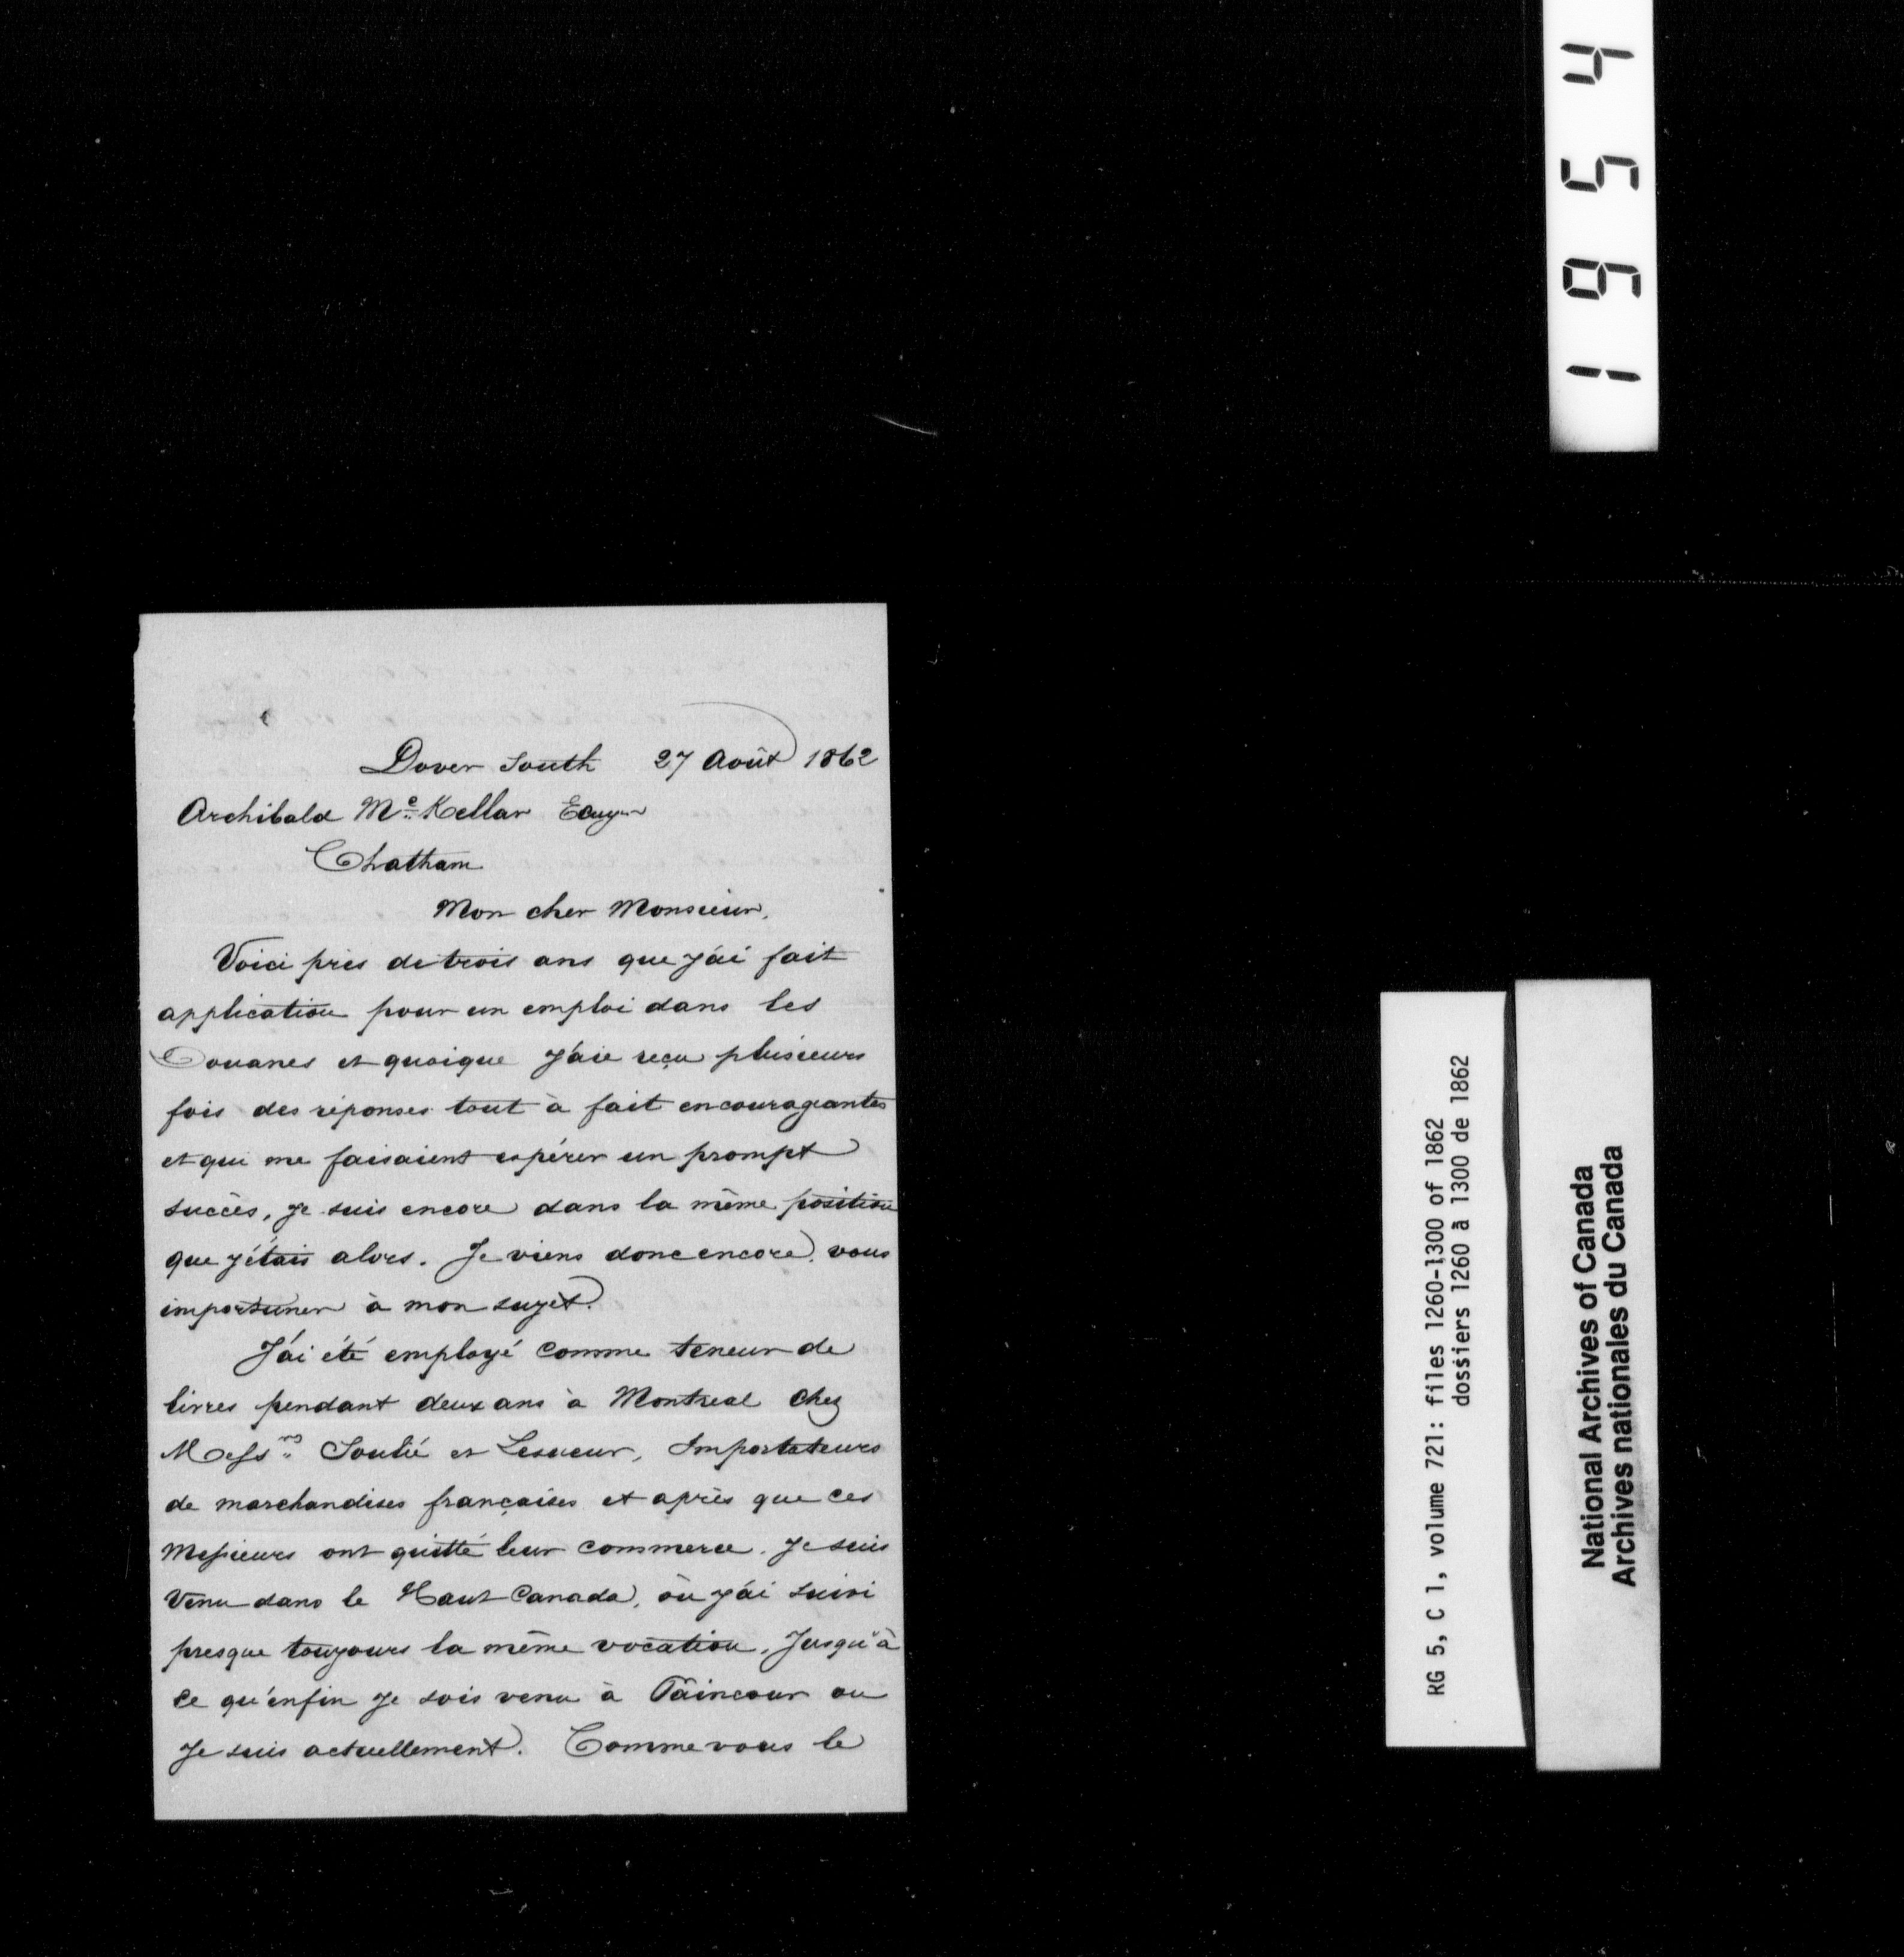 Dover South 27 Août 1862
Archibald Mc. Kellar Ecuyer
Chatham
Mon cher Monsieur,
Voici près de trois ans que j'ai fait
application pour un emploi dans les
Douanes et quoique j'aie reçu plusieurs
fois des réponses tout à fait encourageantes
et qui me faisaient espérer un prompt
succès, je suis encore dans la même position
que j'étais alors. Je viens donc encore vous
importuner à mon sujet.
J'ai été employé comme teneur de
livres pendant deux ans à Montreal chez
Messrs Soulié et Lesueur, Importateurs
de marchandises françaises et après que ces
Messieurs ont quitté leur commerce. Je suis
venu dans le Haut Canada, où j'ai suivi
presque toujours la même vocation, jusqu'à
ce qu'enfin je sois venu à Pâincour ou
je suis actuellement. Comme vous le
1954
RG 5, C 1, volume 721: files 1260-1300 of 1862
dossiers 1260 à 1300 de 1862
National Archives of Canada
Archives nationales du Canada